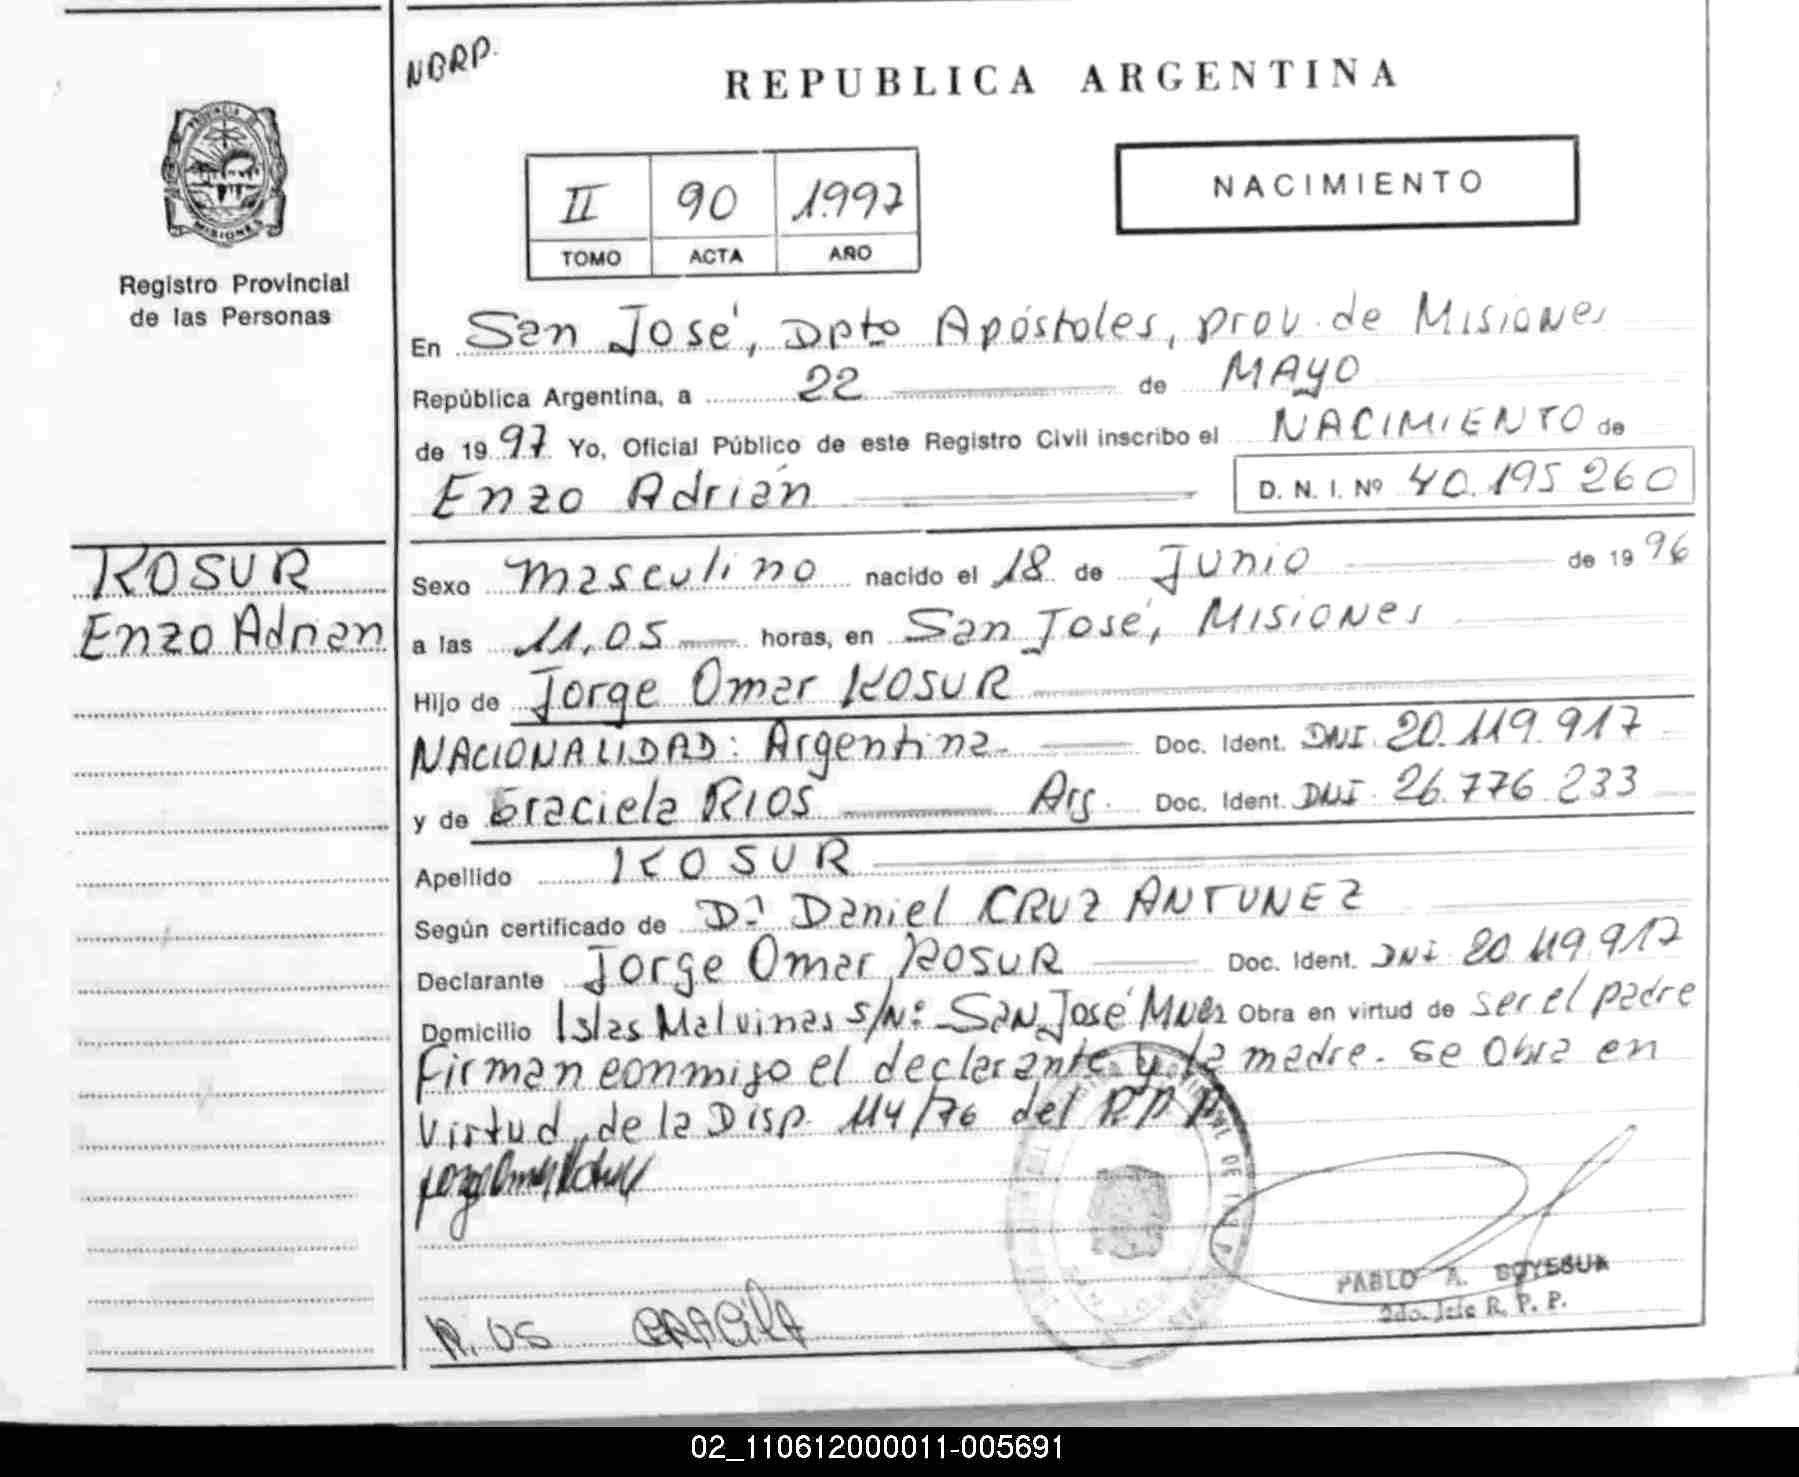 NBRP.
REPUBLICA ARGENTINA
PROVINCIA DE
MISIONES
Registro Provincial
de las Personas
II 90 1997
TOMO ACTA AÑO
NACIMIENTO
En San José, Dpto Apóstoles, prov. de Misiones
República Argentina, a 22 de MAYO
de 1997 Yo, Oficial Público de este Registro Civil inscribo el NACIMIENTO de
Enzo Adrián D. N. I. Nº 40.195 260
KOSUR
Enzo Adrian
Sexo masculino nacido el 18 de Junio de 1996
a las 11,05 horas, en San José, Misiones
Hijo de Jorge Omar KOSUR
NACIONALIDAD: Argentina Doc. Ident. DNI 20.119.917
y de Graciela RIOS Arg. Doc. Ident. DNI 26.776.233
Apellido KOSUR
Según certificado de Dr Daniel CRUZ ANTUNEZ
Declarante Jorge Omar KOSUR Doc. Ident. DNI 20.119.917
Domicilio Islas Malvinas s/Nº San José Mnes Obra en virtud de ser el padre
Firman conmigo el declarante y la madre. se obra en
virtud, de la Disp. 114/76 del R.P.P.
Rios Graciela
PABLO A. BOYESUK
2do. Jefe R. P. P.
02_110612000011-005691